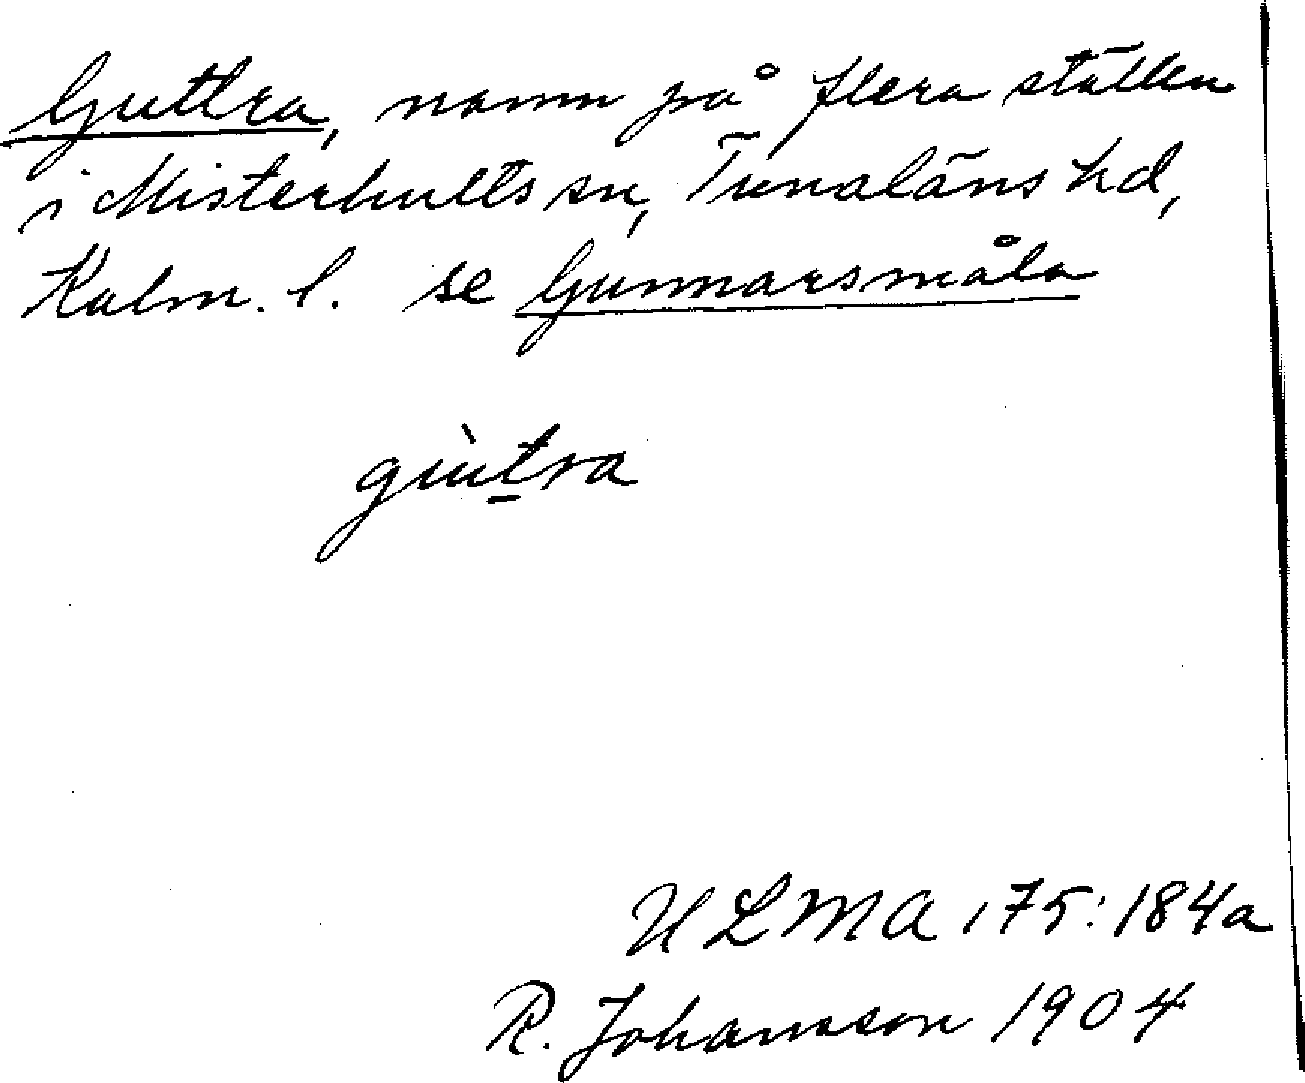 Guttra, namn på flera ställen
i Misterhults sn, Tunaläns hd,
Kalm. l. se Gunnarsmåla
gùt̠ra
ULMA 175:184a
R. Johansson 1904